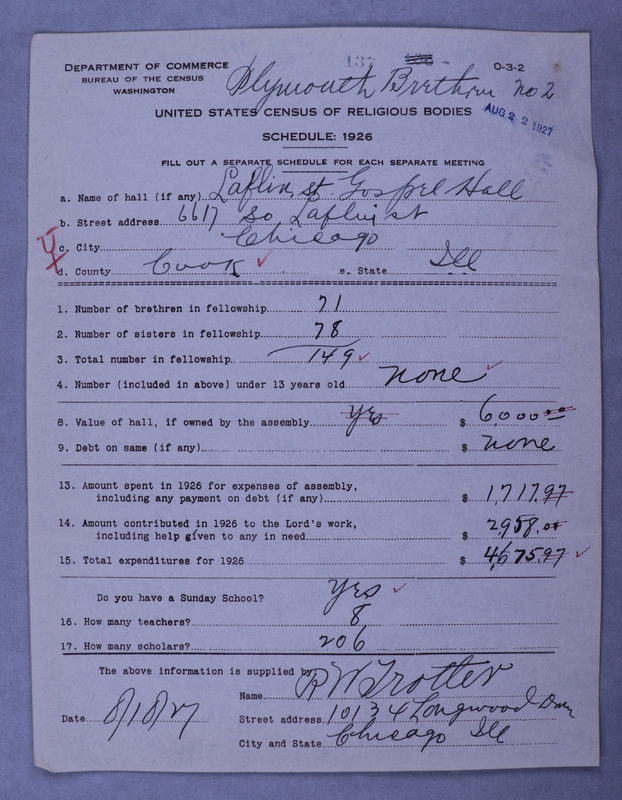 137
O-3-2
DEPARTMENT OF COMMERCE
BUREAU OF THE CENSUS
WASHINGTON
Plymouth Brethren no 2
UNITED STATES CENSUS OF RELIGIOUS BODIES
AUG 22 1927
SCHEDULE: 1926
FILL OUT A SEPARATE SCHEDULE FOR EACH SEPARATE MEETING
a. Name of hall (if any) Laflin st Gospel Hall
b. Street address 6617 So Laflin st
c. City Chicago
d. County Cook e. State Ill
1. Number of brethren in fellowship 71
2. Number of sisters in fellowship 78
3. Total number in fellowship 149
4. Number (included in above) under 13 years old none
8. Value of hall, if owned by the assembly yes $ 6,000.00
9. Debt on same (if any) $ none
13. Amount spent in 1926 for expenses of assembly,
including any payment on debt (if any) $ 1,717.97
14. Amount contributed in 1926 to the Lord's work,
including help given to any in need $ 2958.00
15. Total expenditures for 1926 $ 4,675.97
Do you have a Sunday School? Yes
16. How many teachers? 8
17. How many scholars? 206
The above information is supplied by
Name R W Trotter
Date 8/18/27 Street address 10134 Longwood Driv
City and State Chicago Ill